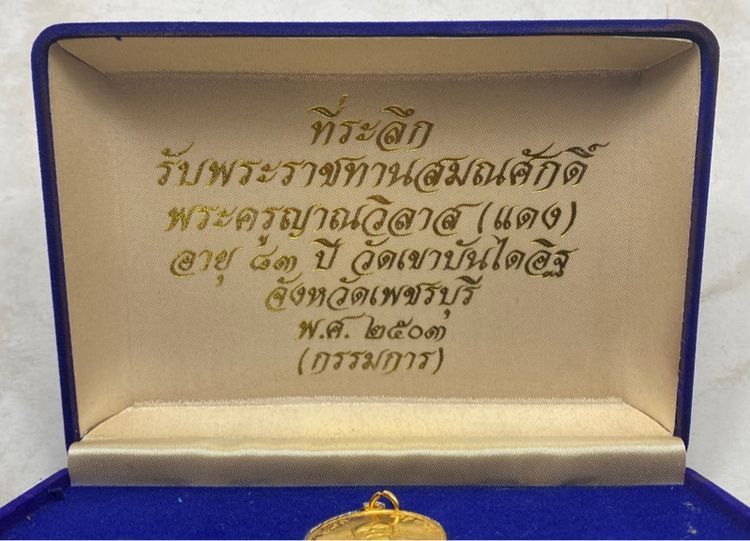 ที่ระลึก
รับพระราชทานสมณศักดิ์
พระครูญาณวิลาส (แดง)
อายุ ๘๓ ปี วัดเขาบันไดอิฐ
จังหวัดเพชรบุรี
พ.ศ. ๒๕๐๓
(กรรมการ)